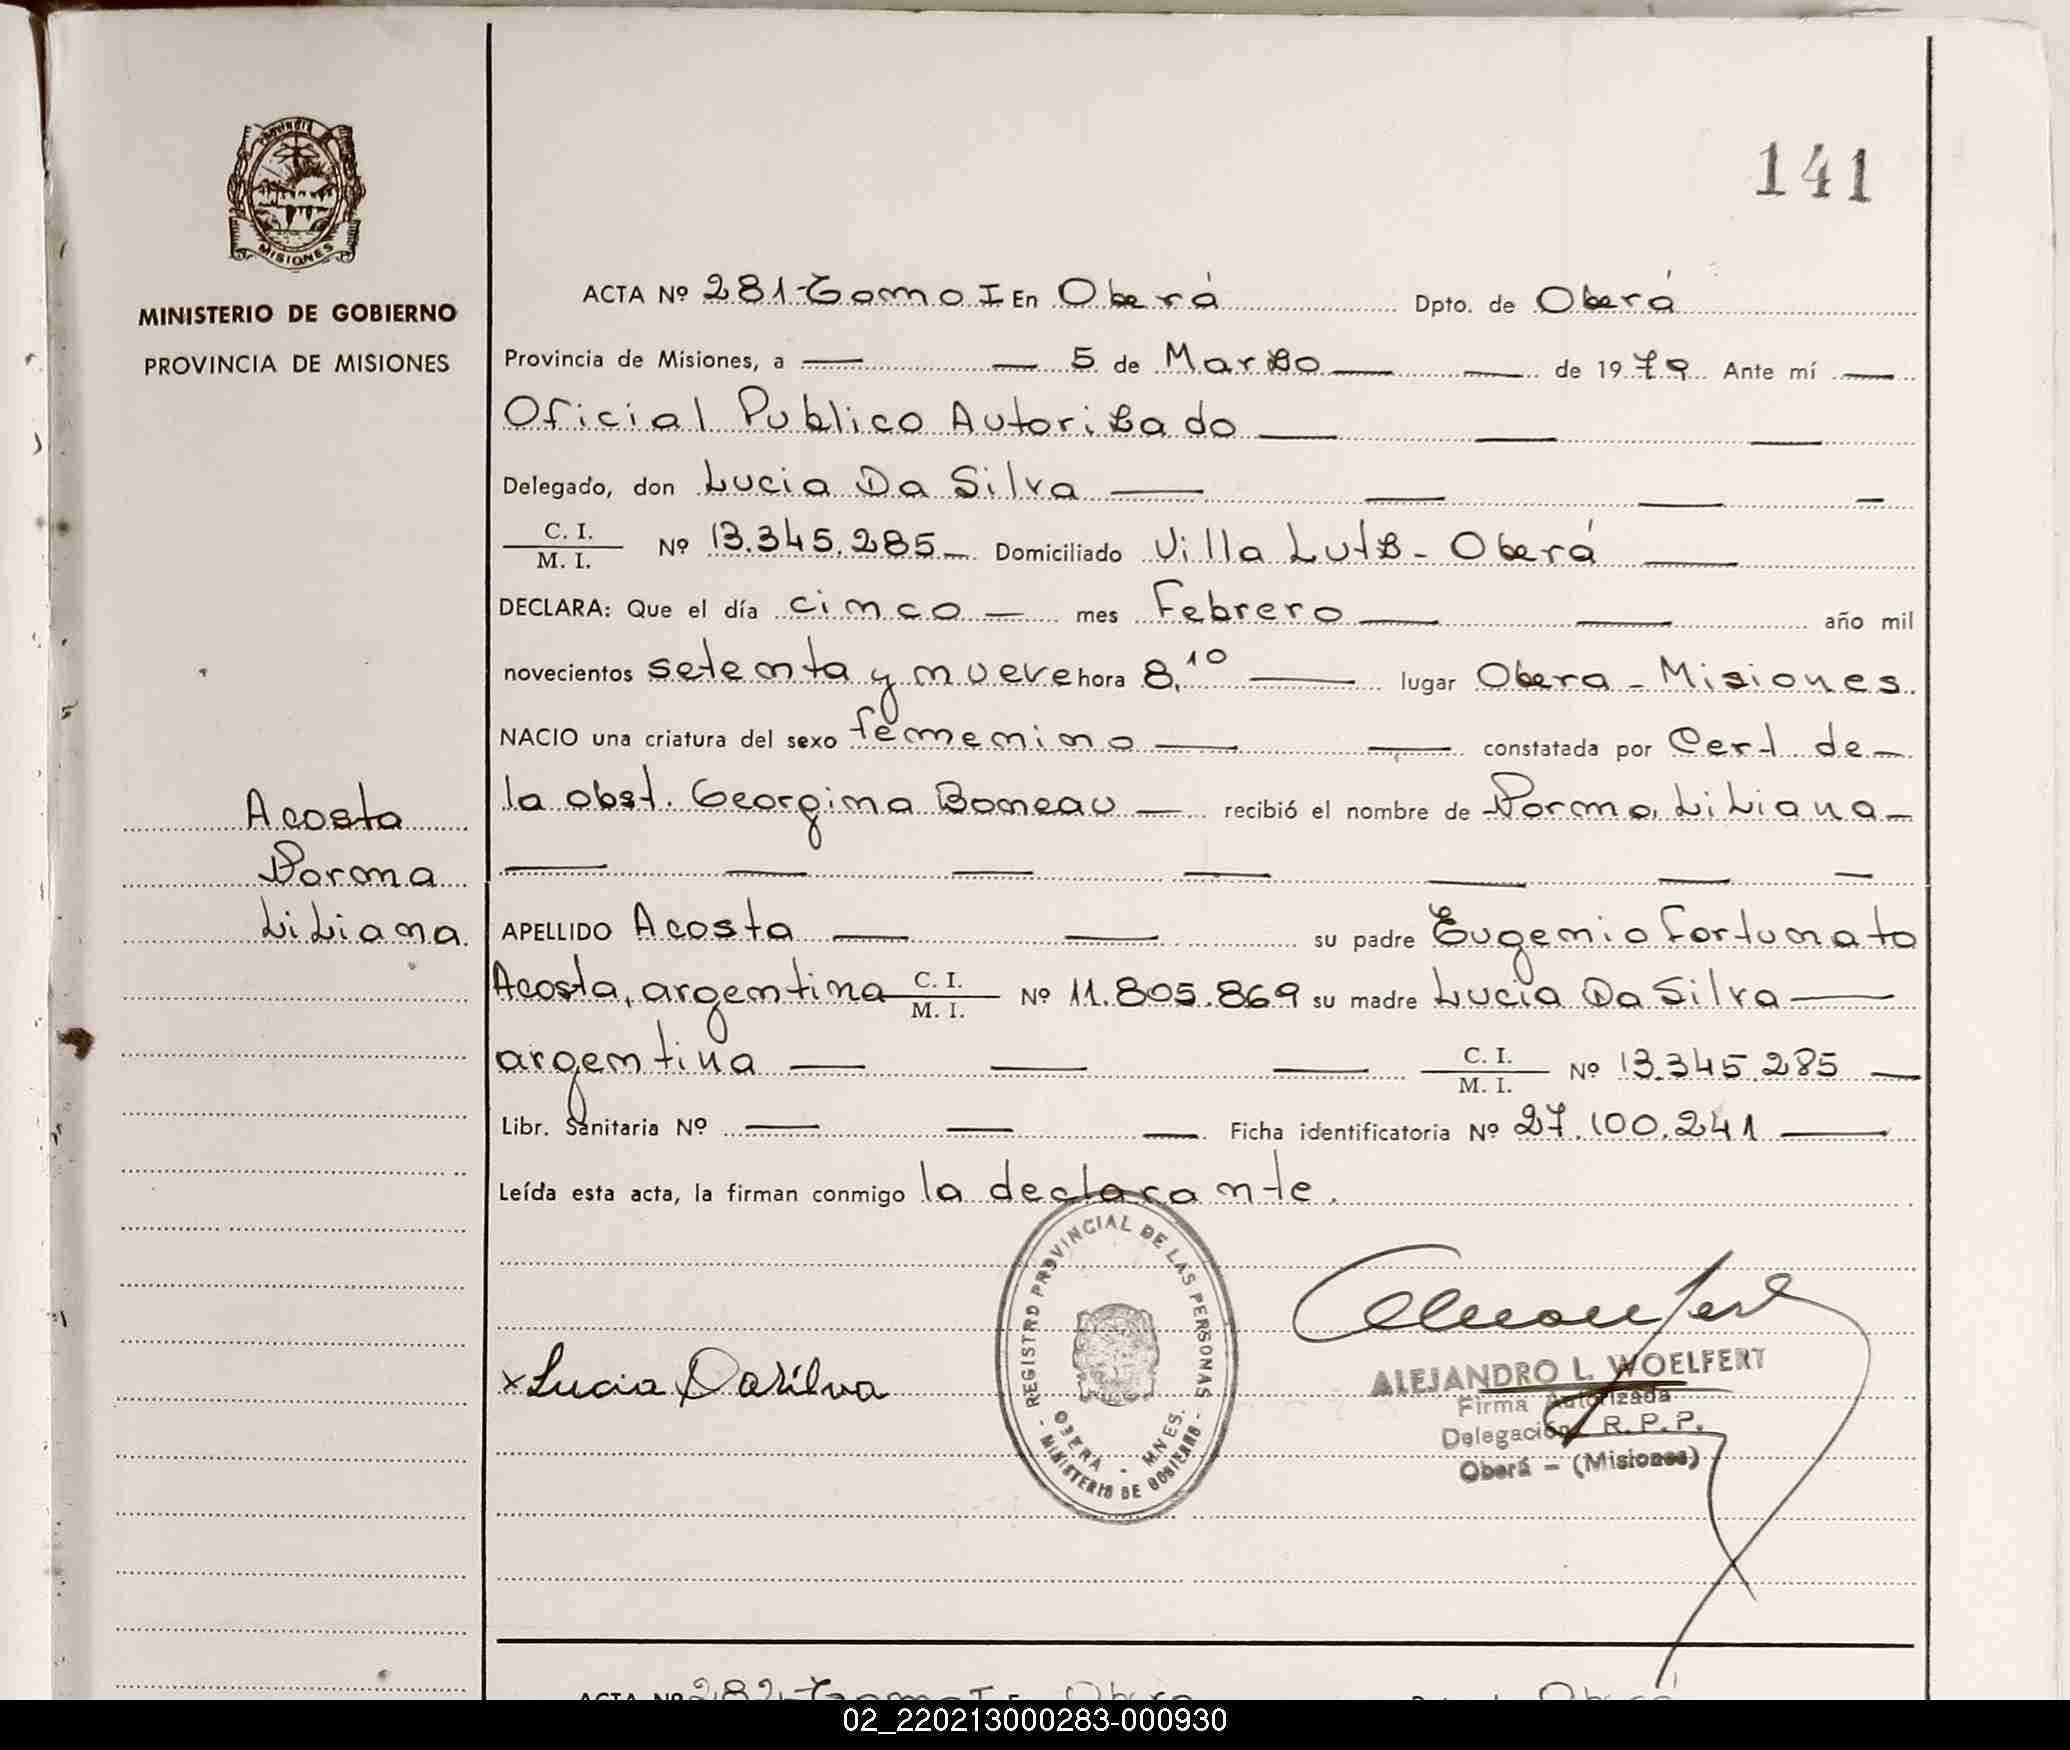 Provincia
MISIONES
MINISTERIO DE GOBIERNO
PROVINCIA DE MISIONES
141
ACTA Nº 281-Tomo I En Oberá Dpto. de Oberá
Provincia de Misiones, a — — 5 de Marzo — — de 1979 Ante mí —
Oficial Publico Autorizado — — —
Delegado, don Lucia Da Silva — — — —
C. I.
M. I. Nº 13.345.285 — Domiciliado Villa Lutz - Oberá —
DECLARA: Que el día cinco — mes Febrero — — año mil
novecientos setenta y nueve hora 8,10 — lugar Obera - Misiones.
NACIO una criatura del sexo femenino — — constatada por Cert de —
la obst. Georgina Boneau — recibió el nombre de Norma, Liliana —
— — — — — — —
APELLIDO Acosta — — su padre Eugenio Fortunato
Acosta, argentina C. I. / M. I. Nº 11.805.869 su madre Lucia Da Silva —
argentina — — — C. I. / M. I. Nº 13.345.285 —
Libr. Sanitaria Nº — — — Ficha identificatoria Nº 27.100.241 —
Leída esta acta, la firman conmigo la declarante.
Acosta
Norma
Liliana.
x Lucia Da Silva
REGISTRO PROVINCIAL DE LAS PERSONAS
OBERA - MNES.
- MINISTERIO DE GOBIERNO -
ALEJANDRO L. WOELFERT
Firma Autorizada
Delegación R. P. P.
Oberá - (Misiones)
ACTA Nº 282-Tomo I En Obera Oberá
02_220213000283-000930